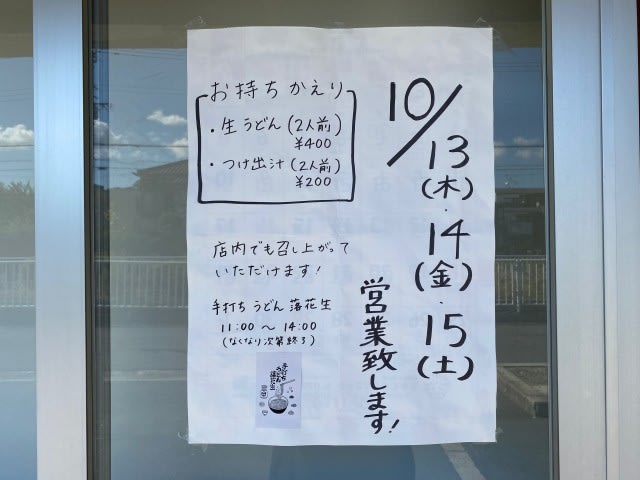 10/13(木)・14(金)・15(土)
営業致します!
お持ちかえり
・生うどん(2人前)
¥400
・つけ出汁(2人前)
¥200
店内でも召し上がって
いただけます!
手打ちうどん 落花生
11:00 〜 14:00
(なくなり次第終了)
手打ち
うどん
落花生